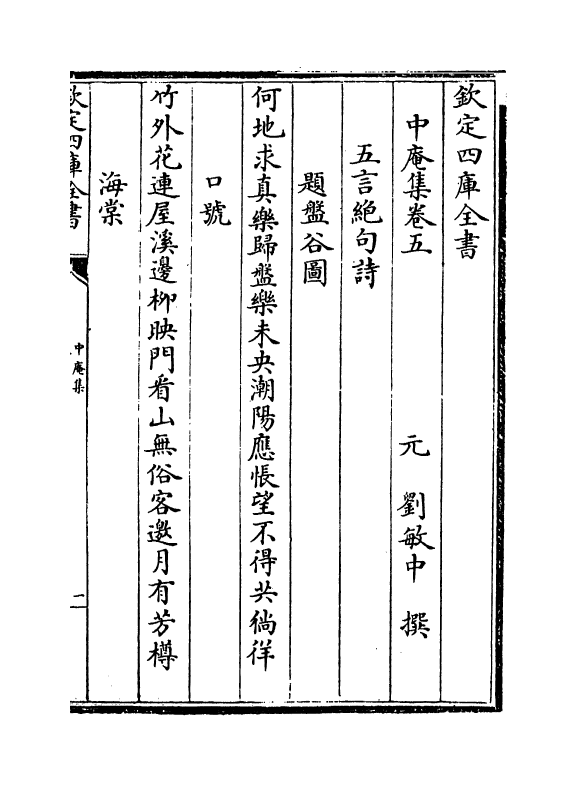 欽定四庫全書
中庵集卷五
元　劉敏中　撰
五言絶句詩
題盤谷圖
何地求真樂歸盤樂未央潮陽應悵望不得共徜徉
口號
竹外花連屋溪邊柳映門看山無俗客邀月有芳樽
海棠
欽定四庫全書
中庵集